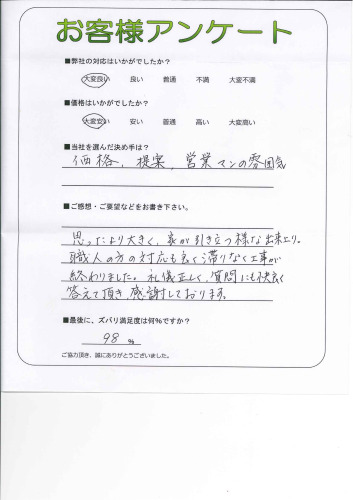 お客様アンケート
■弊社の対応はいかがでしたか?
大変良い 良い 普通 不満 大変不満
■価格はいかがでしたか?
大変安い 安い 普通 高い 大変高い
■当社を選んだ決め手は?
価格、提案、営業マンの雰囲気
■ご感想・ご要望などをお書き下さい。
思ったより大きく、家が引き立つ様な出来上り。
職人の方の対応も良く滞りなく工事が
終わりました。礼儀正しく、質問にも快良く
答えて頂き、感謝しております。
■最後に、ズバリ満足度は何%ですか?
98 %
ご協力頂き、誠にありがとうございました。